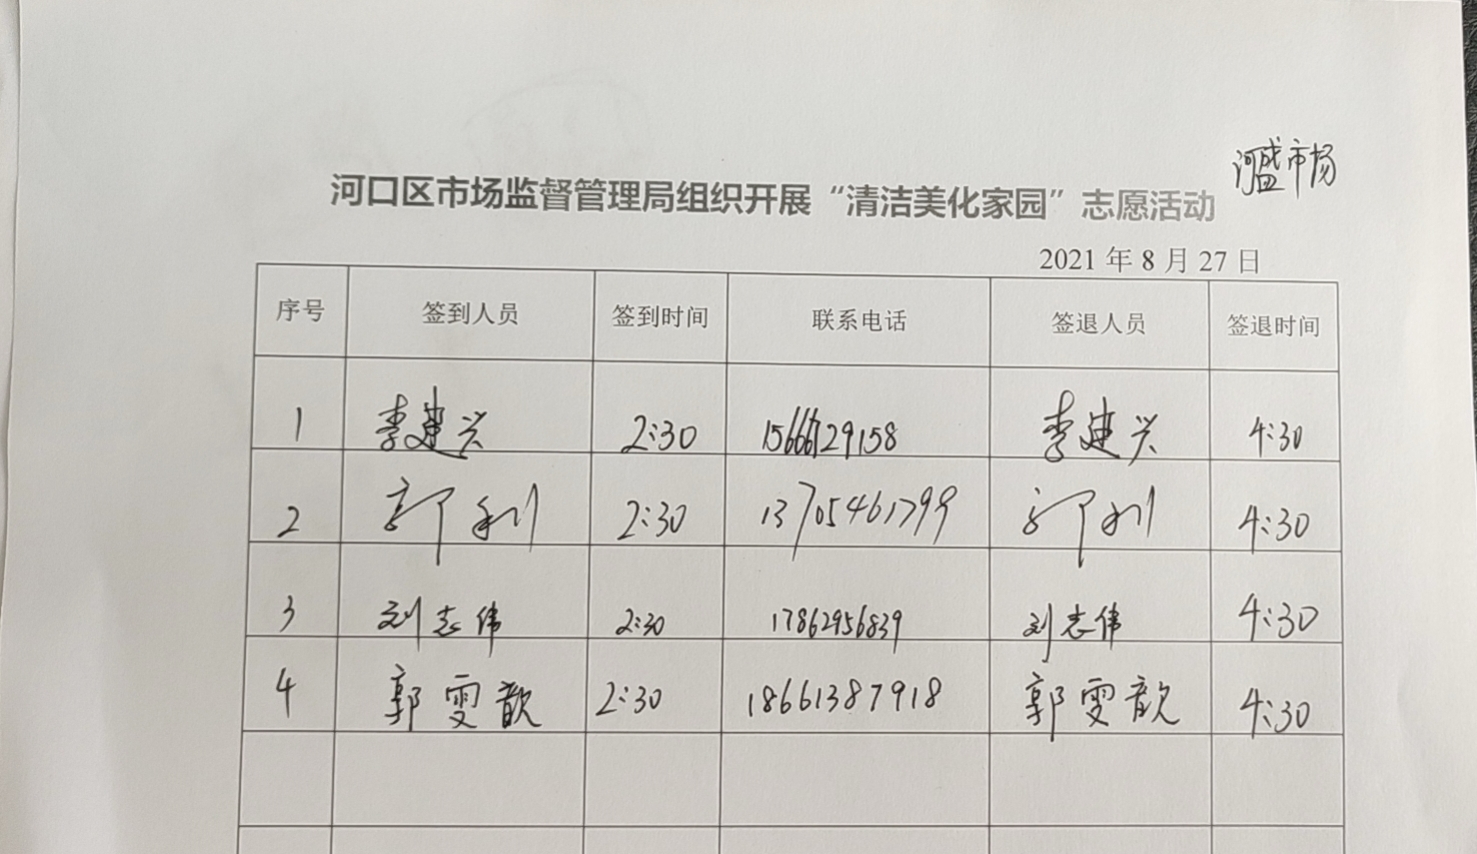 河盛市场
河口区市场监督管理局组织开展“清洁美化家园”志愿活动
2021 年 8 月 27 日
序号 签到人员 签到时间 联系电话 签退人员 签退时间
1 李建兴 2:30 15666129158 李建兴 4:30
2 郭利 2:30 13705461799 郭利 4:30
3 刘志伟 2:30 17862956839 刘志伟 4:30
4 郭雯歆 2:30 18661387918 郭雯歆 4:30